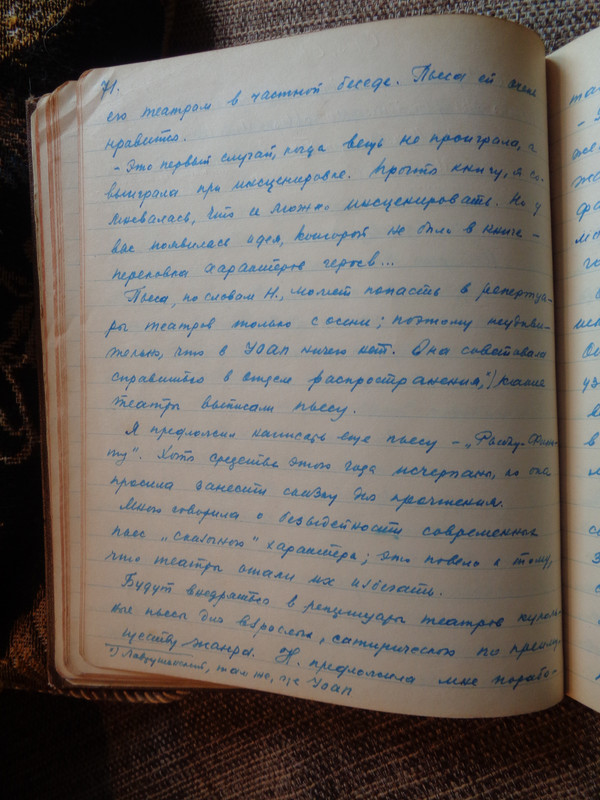 71.
его театрам в частной беседе. Пьеса ей очень
нравится.
– Это первый случай, когда вещь не проиграла, а
выиграла при инсценировке. Просто книгу, я со-
мневалась, что и можно инсценировать. Но у
вас появилась идея, которой не было в книге –
перековка характеров героев...
Пьеса, по словам Н., может попасть в репертуа-
ры театров только с осени; поэтому неудиви-
тельно, что в УОАП ничего нет. Она советовала
справиться в отделе распространения,*) какие
театры выписали пьесу.
Я предложил написать еще пьесу – „Рыбку-Фин-
ту“. Хотя средства этого года исчерпаны, но она
просила занести сказку для прочтения.
Много говорила о безыдейности современных
пьес „сказочного“ характера; это повело к тому,
что театры стали их избегать.
Будут внедряться в репертуары театров куколь-
ные пьесы для взрослых, сатирического по преиму-
ществу жанра. Н. предложила мне порабо-
*) Лаврушинский, там же, где УОАП